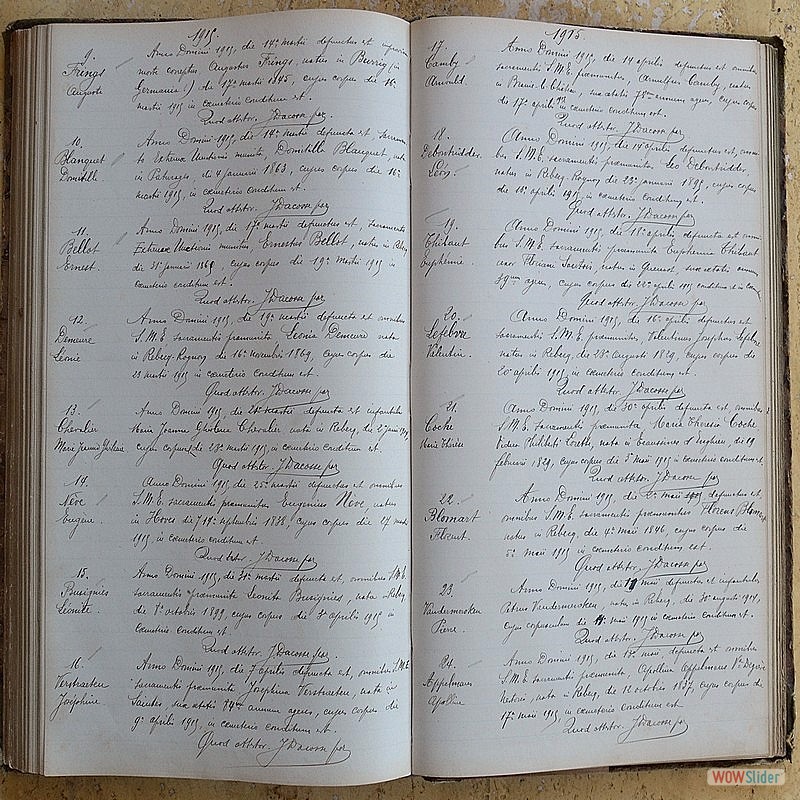 1915.
9.
Frings
Auguste
Anno Domini 1915, die 14ª martii defunctus est
morte correptus, Augustus Frings, natus in
Germania) die 17ª martii 1845, cujus corpus die 16ª
martii 1915 in cæmeterio conditum est.
Quod attestor. J Dacosse par
10.
Blanquet
Domitille
Anno Domini 1915, die 14ª martii defuncta est, sacramen
to Extremæ Unctionis munita, Domitilla Blanquet, nata
in Paturages, die 4 januarii 1863, cujus corpus die 16ª
martii 1915, in cæmeterio conditum est.
Quod attestor. J Dacosse par
11.
Bellot
Ernest.
Anno Domini 1915, die 17ª martii defunctus est, sacramento
Extremæ Unctionis munitus, Ernestus Bellot, natus in Rebecq
die 31ª januarii, cujus corpus die 19ª martii 1915 in
cæmeterio conditum est.
Quod attestor. J Dacosse par
12.
Demeure
Léonie
Anno Domini 1915, die 19ª martii defuncta est omnibus
S.M.E. sacramentis præmunita Leonia Demeure nata
in Rebecq-Rognon die 16ª novembris 1869, cujus corpus die
23 martii 1915 in cæmeterio conditum est.
Quod attestor. J Dacosse par
13.
Chevalier
Marie Jeanne Ghislaine
Anno Domini 1915, die martii defuncta est infantula
Maria Joanna Ghislena Chevalier nata in Rebecq, die 2 junii
cujus corpus die 23ª martii 1915 in cæmeterio conditum est.
Quod attestor. J Dacosse par
14.
Nève
Eugène.
Anno Domini 1915, die 25ª martii defunctus est omnibus
S.M.E. sacramentis præmunitus Eugenius Nève, natus
in Hoves die 19ª septembris 1838, cujus corpus die 27 martii
1915 in cæmeterio conditum est.
Quod testor. J Dacosse par
15.
Busignies
Léonite.
Anno Domini 1915, die 31ª martii defuncta est, omnibus S.M.E.
sacramentis præmunita Leonita Busignies, nata Rebecq
die 1ª octobris 1899, cujus corpus die 3ª aprilis 1915 in
cæmeterio conditum est.
Quod testor. J Dacosse par.
16.
Verstraeten
Joséphine
Anno Domini 1915, die 7 aprilis defuncta est, omnibus S.M.E.
sacramentis præmunita Josephina Verstraeten, nata in
Saintes, sua ætatis 74ª annum agens, cujus corpus die
9ª aprilis 1915, in cæmeterio conditum est.
Quod attestor. J Dacosse par
1915.
17.
Camby
Arnould.
Anno Domini 1915, die 14 aprilis defunctus est omnibus
sacramentis S.M.E. præmunitus, Arnulfus Camby, natus
in Braine-le-Château, suæ ætatis 78ª annum agens, cujus corpus
die 17ª aprilis in cæmeterio conditum est.
Quod attestor. J Dacosse par
18.
Debontridder
Léon.
Anno Domini 1915, die 14 aprilis defunctus est, omni-
bus S.M.E. sacramentis præmunitus Leo Debontridder,
natus in Rebecq-Rognon die 23ª januarii 1895, cujus corpus
die 18ª aprilis 1915 in cæmeterio conditum est.
Quod attestor. J Dacosse par
19.
Thibaut
Euphémie.
Anno Domini 1915, die 18ª aprilis defuncta est omni-
bus S.M.E. sacramentis præmunita Euphemia Thibaut
uxor Floriani, nata in Quenast, suæ ætatis annum
59um agens, cujus corpus die 22ª aprilis 1915 conditum est in
Quod attestor. J Dacosse par
20.
Lefebvre
Valentin.
Anno Domini 1915, die 16ª aprilis defunctus est
sacramentis S.M.E. præmunitus, Valentinus Josephus Lefebvre
natus in Rebecq, die 28ª augusti 1829, cujus corpus die
20ª aprilis 1915, in cæmeterio conditum est.
Quod attestor. J Dacosse par
21.
Coche
Marie Thérèse
Anno Domini 1915, die 30ª aprilis defuncta est, omnibus
S.M.E. sacramentis præmunita Maria Theresia Coche
Vidua, nata in Ecaussines d'Enghien, die 19
februarii 1829, cujus corpus die 3ª maii 1915 in cæmeterio conditum est.
Quod attestor. J Dacosse par
22.
Blomart
Florent.
Anno Domini 1915, die 2ª maii defunctus est,
omnibus S.M.E. sacramentis præmunitus Florens Blomart
natus in Rebecq, die 4ª maii 1846, cujus corpus die
5ª maii 1915 in cæmeterio conditum est.
Quod attestor. J Dacosse par
23.
Vandermooken
Pierre.
Anno Domini 1915, die maii defunctus est infantulus
Petrus Vandermooken, natus in Rebecq, die 30ª augusti 1914,
cujus corpusculum die maii 1915 in cæmeterio conditum est.
Quod attestor. J Dacosse par
24.
Appelmans
Apolline
Anno Domini 1915, die maii defuncta est omnibus
S.M.E. sacramentis præmunita, Apollina Appelmans
nata in Rebecq, die 12 octobris 1837, cujus corpus die
17ª maii 1915 in cæmeterio conditum est.
Quod attestor. J Dacosse par
WOWSlider